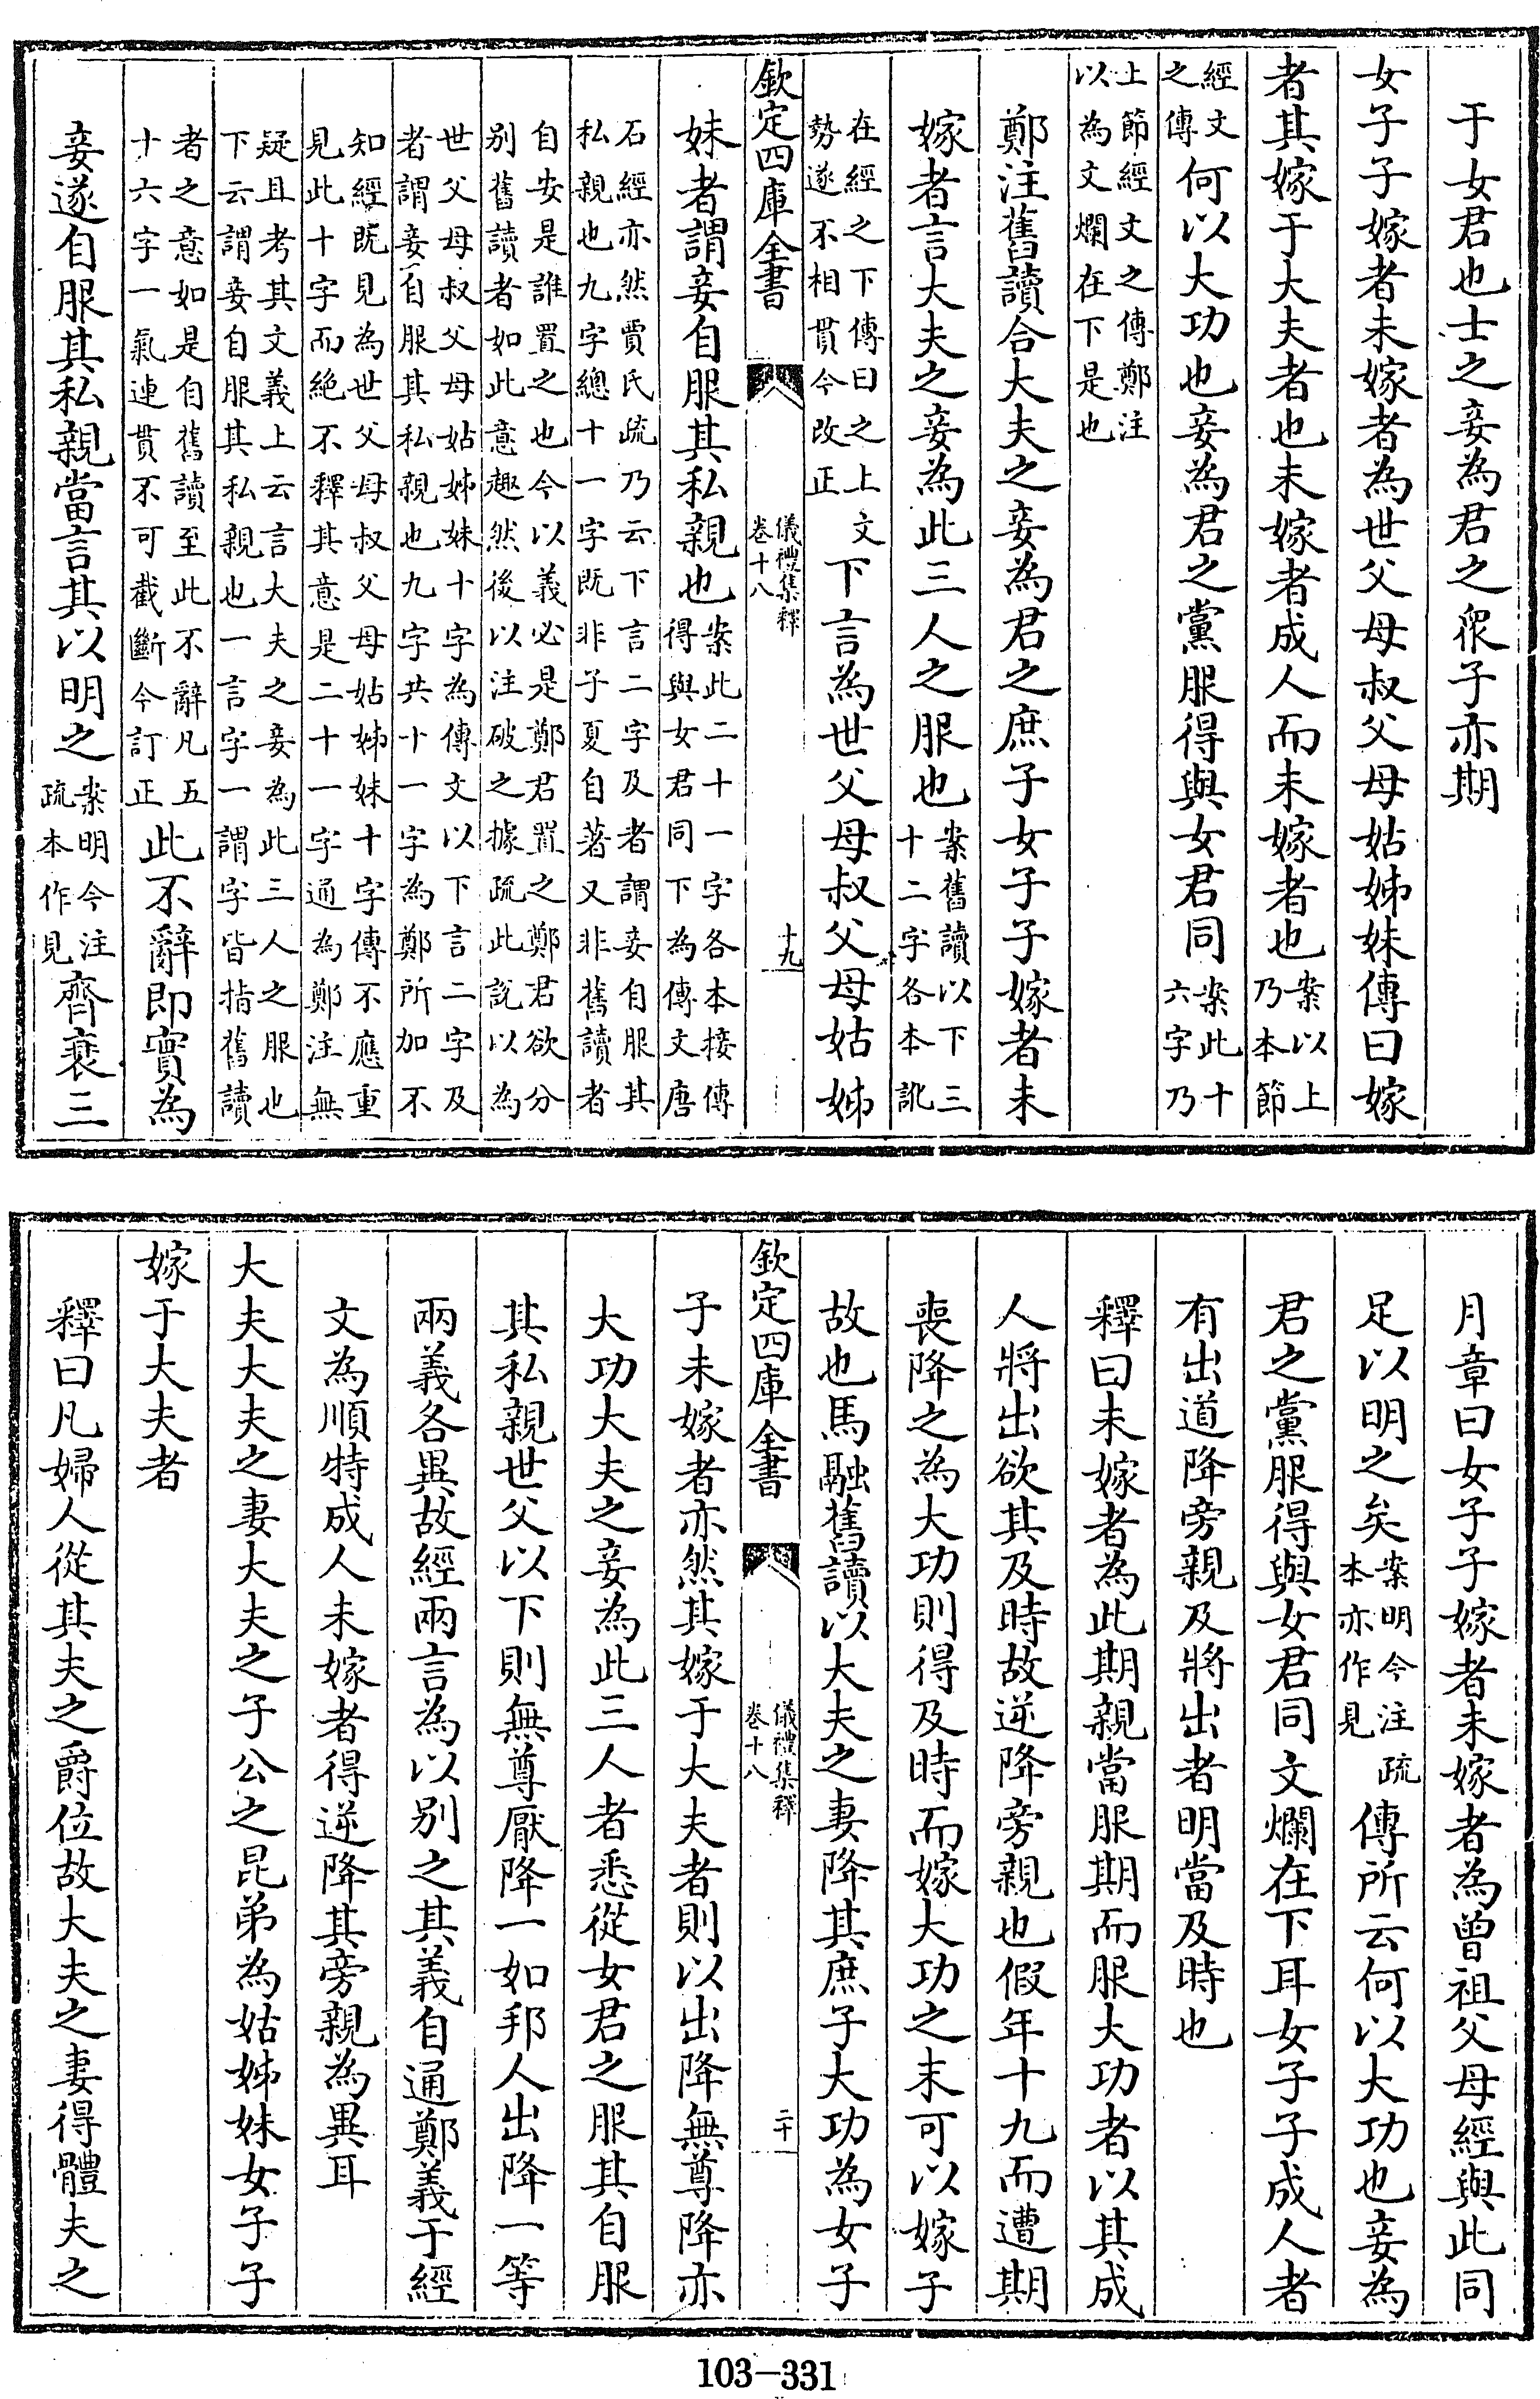 于女君也士之妾為君之眾子亦期
女子子嫁者未嫁者為世父母叔父母姑姊妹傳曰嫁
者其嫁于大夫者也未嫁者成人而未嫁者也案以上乃本節
經文之傳何以大功也妾為君之黨服得與女君同案此十六字乃
上節經文之傳鄭注以為文爛在下是也
鄭注舊讀合大夫之妾為君之庶子女子子嫁者未
嫁者言大夫之妾為此三人之服也案舊讀以下三十二字各本訛
在經之下傳曰之上文勢遂不相貫今改正下言為世父母叔父母姑姊
欽定四庫全書 儀禮集釋 卷十八 十九
妹者謂妾自服其私親也案此二十一字各本接傳得與女君同下為傳文唐
石經亦然賈氏疏乃云下言二字及者謂妾自服其私親也九字總十一字既非子夏自著又非舊讀者
自安是誰置之也今以義必是鄭君置之鄭君欲分別舊讀者如此意趣然後以注破之據疏此説以為
世父母叔父母姑姊妹十字為傳文以下言二字及者謂妾自服其私親也九字共十一字為鄭所加不
知經既見為世父母叔父母姑姊妹十字傳不應重見此十字而絕不釋其意是二十一字通為鄭注無
疑且考其文義上云言大夫之妾為此三人之服也下云謂妾自服其私親也一言字一謂字皆指舊讀
者之意如是自舊讀至此不辭凡五十六字一氣連貫不可截斷今訂正此不辭即實為
妾遂自服其私親當言其以明之案明今注疏本作見齊衰三
月章曰女子子嫁者未嫁者為曾祖父母經與此同
足以明之矣案明今注疏本亦作見傳所云何以大功也妾為
君之黨服得與女君同文爛在下耳女子子成人者
有出道降旁親及將出者明當及時也
釋曰未嫁者為此期親當服期而服大功者以其成
人將出欲其及時故逆降旁親也假年十九而遭期
喪降之為大功則得及時而嫁大功之末可以嫁子
故也馬融舊讀以大夫之妻降其庶子大功為女子
欽定四庫全書 儀禮集釋 卷十八 二十
子未嫁者亦然其嫁于大夫者則以出降無尊降亦
大功大夫之妾為此三人者悉從女君之服其自服
其私親世父以下則無尊厭降一如邦人出降一等
兩義各異故經兩言為以別之其義自通鄭義于經
文為順特成人未嫁者得逆降其旁親為異耳
大夫大夫之妻大夫之子公之昆弟為姑姊妹女子子
嫁于大夫者
釋曰凡婦人從其夫之爵位故大夫之妻得體夫之
103-331